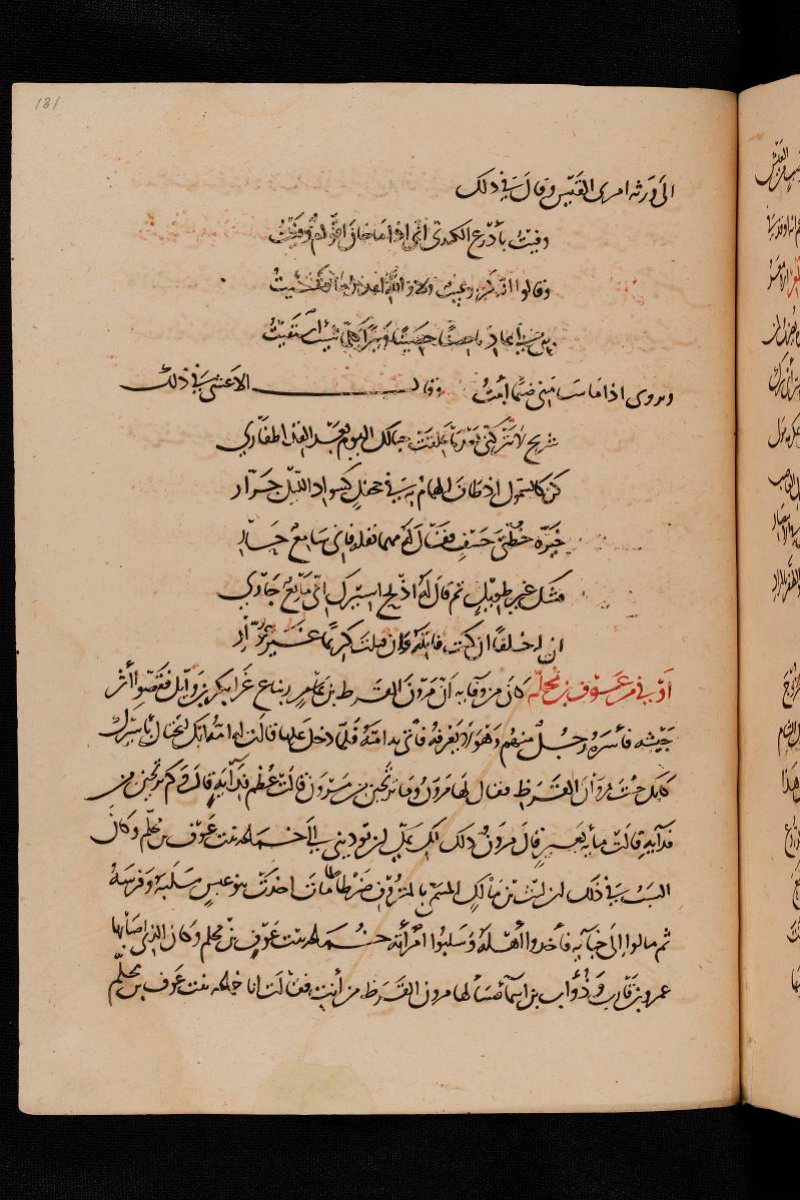 131
الى ورثه امرى القيس وقال في ذلك
وفيت بأدرع الكندى انى اذا ما خان اقوام وفيت
وقالوا انه كنز رغيب ولا والله اغدر ما مشيت
بنى لى عاديا حصنا حصينا وبيرا كلما شيت استقيت
ويروى اذا ما سامنى ضيما أبيت وقال الاعشى في ذلك
شريح لا تتركنى بعد ما علقت حبالك اليوم بعد القد اظفارى
كن كالسمول اذ طاف الهمام به في جحفل كسواد الليل جرار
خيره خطتى خسف فقال له مهما تقله فانى سامع حار
فشك غير طويل ثم قال له اذبح اسيرك انى مانع جارى
ان له خلفا ان كنت قاتله وان قتلت كريما غير عوار
أوفى من عوف بن محلم كان من وفايه ان مروان القرظ بن غزا بكر بن وايل فقصوا أثر
جيشه فأسره رجل منهم وهو لا يعرفه فأتى به امه فلما دخل عليها قالت له امه انك لتختال بأسيرك
كانك جيت بمروان القرظ فقال لها مروان وما ترتجين من مروان قالت عظم فدآيه قال وكم ترتجين من
فدآيه قالت مأية بعير قال مروان ذلك لك على ان توديني الى خماعة بنت عوف بن محلم وكان
السبب في ذلك ان ليث بن مالك المسمى بالمنزوف ضرطا لما مات اخذت بنو عبس سلبه وفرسه
ثم مالوا الى خبآيه فأخدوا أهله وسلبوا امرأته خماعة بنت عوف بن محلم وكان الذى اصابها
عمرو بن قارب وذؤاب بن اسمآ فسألها مروان القرظ من أنت فقالت انا خماعه بنت عوف بن محلم